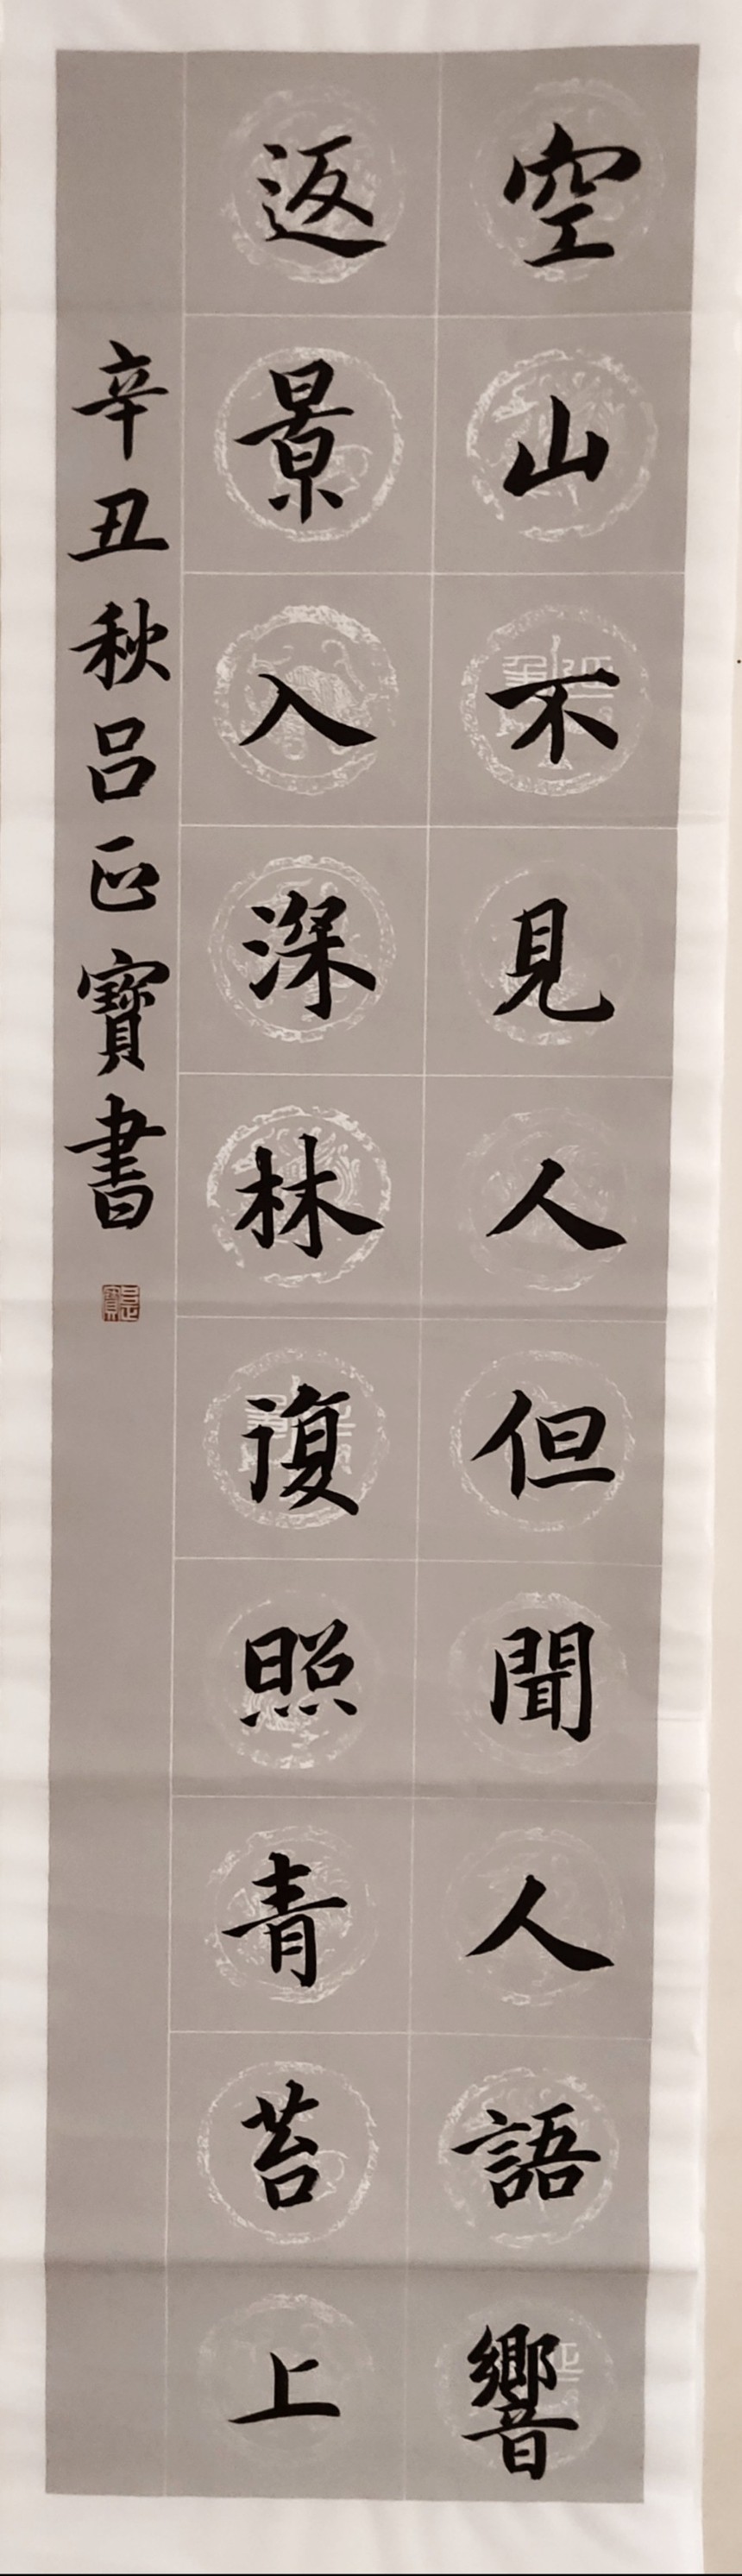 空山不見人但聞人語響
返景入深林復照青苔上
辛丑秋吕正寶書
吕正寶